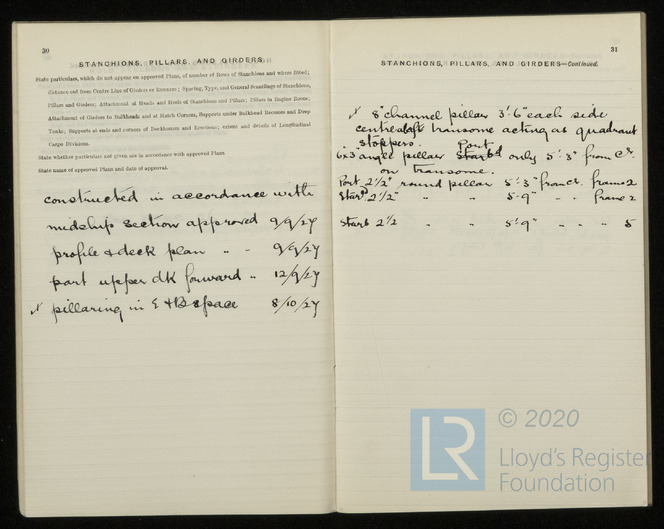 30
STANCHIONS, PILLARS, AND GIRDERS.
State particulars, which do not appear on approved Plans, of number of Rows of Stanchions and where fitted;
distance out from Centre Line of Girders or Stanchions; Spacing, Type, and General Scantlings of Stanchions,
Pillars and Girders; Attachment at Heads and Heels of Stanchions and Pillars; Pillars in Engine Room;
Attachment of Girders to Bulkheads and at Hatch Corners, Supports under Bulkhead Recesses and Deep
Tanks; Supports at ends and corners of Deckhouses and Erections; extent and details of Longitudinal
Cargo Divisions.
State whether particulars not given are in accordance with approved Plans.
State name of approved Plans and date of approval.
constructed in accordance with
midship section approved 9/9/27
profile & deck plan " " 9/9/27
part upper dk forward " 12/9/27
pillaring in E & B space 8/10/27
31
STANCHIONS, PILLARS, AND GIRDERS—Continued.
8" channel pillar 3'-6" each side
centre aloft transome acting as quadrant
stoppers. Port
6x3" angle pillar Starbd only 5'-3" from CL
on transome.
Port 2½" round pillar 5'-3" from CL frame 2
Starbd 2½" " " 5'-9" " " frame 2
Starb 2½ " " 5'-9" " " " 5
LR
© 2020
Lloyd's Register
Foundation